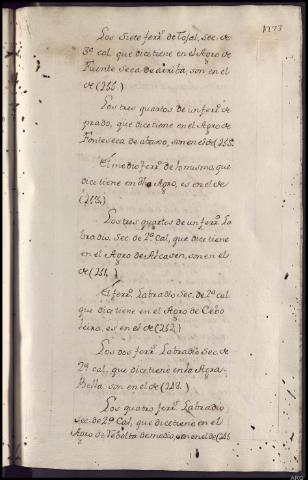 1173
Los Siete ferr.s de Tojal, Sec. de
3.a cal. que dice tiene en el Agro de
Fuente seca de arriba, son en el
de (255.)
Los tres quartos de un ferr.o de
prado, que dice tiene en el Agro de
Fonteseca de abaxo, son en el de (258.
El medio ferr.o de lo mismo, que
dice tiene en dho Agro, es en el de
Los tres quartos de un ferr.o La
bradio, Sec. de 2.a Cal, que dice tiene
en el Agro de son en el
de (251.)
El ferr.o Labradio Sec. de 2.a cal.
que dice tiene en el Agro de Cebo
leiro, es en el de (252.)
Los dos ferr.s Labradio Sec. de
2.a cal, que dice tiene en la Agra-
Bella, son en el de (218.)
Los quatro ferr.s Labradio
Sec. de 2.a Cal, que dice tiene en el
Agro de de medio, son en el de (246